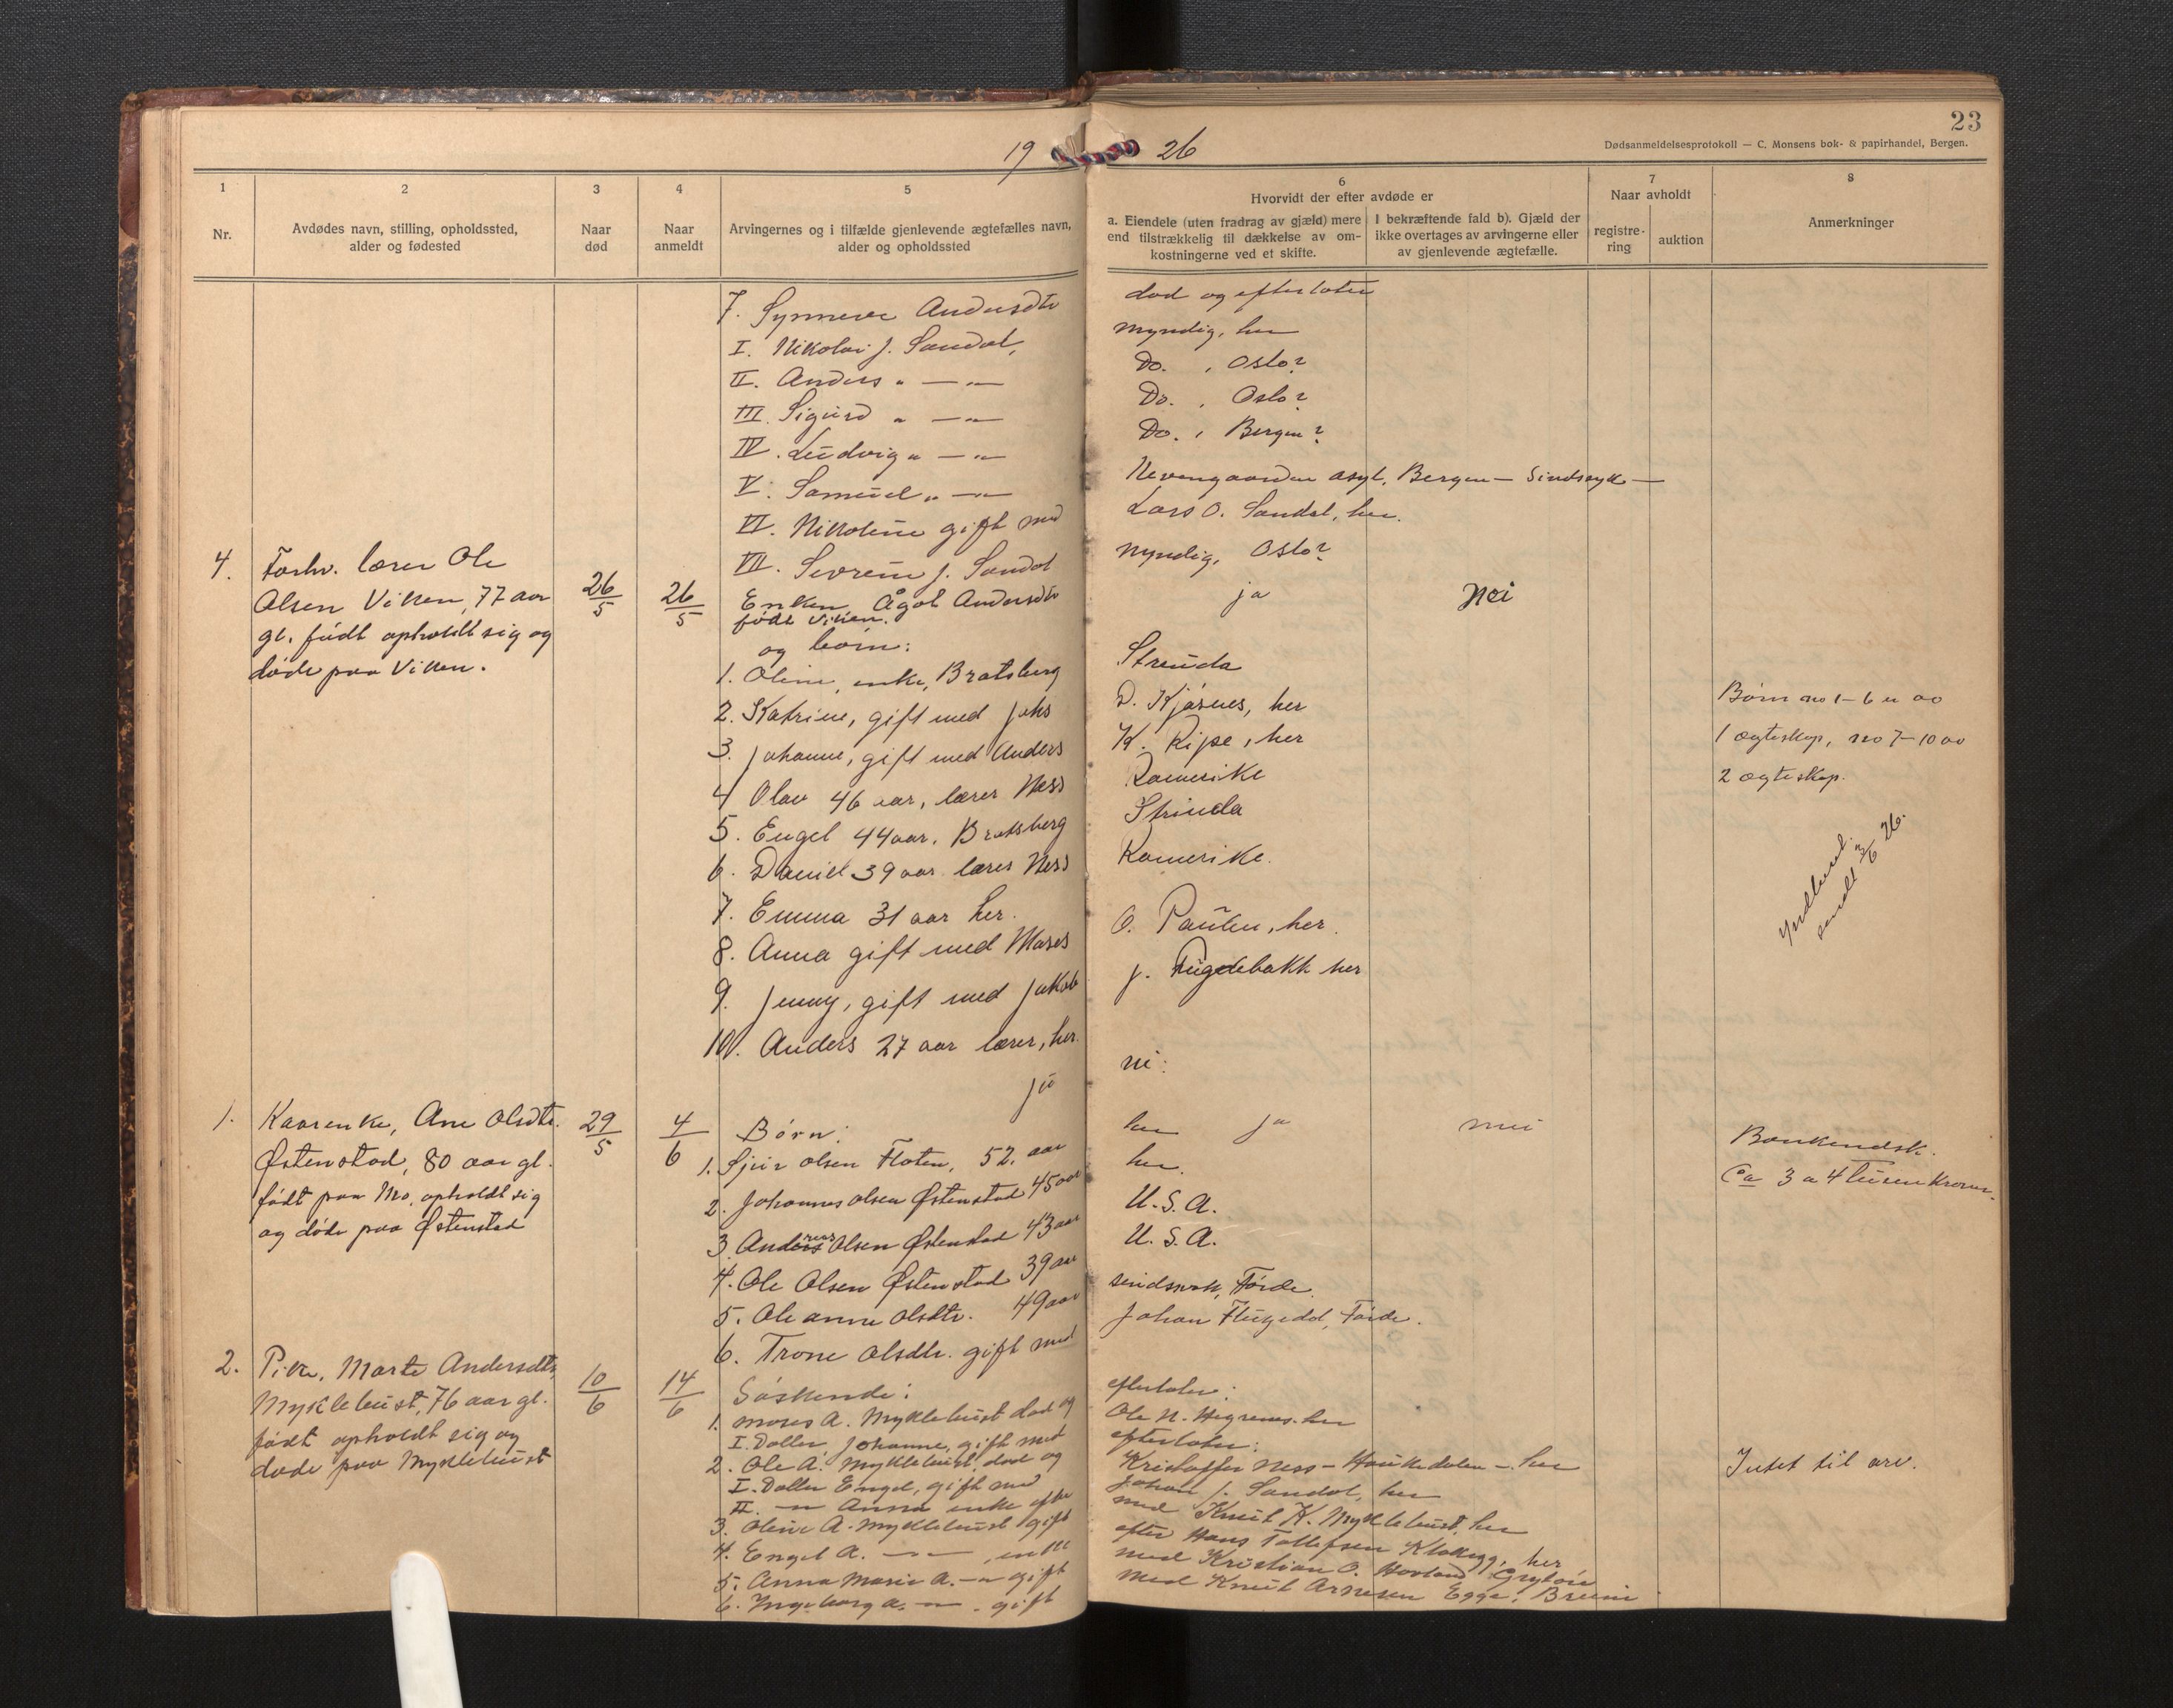 23
19 26
Dødsanmeldelsesprotokoll — C. Monsens bok- & papirhandel, Bergen.
1
Nr.
2
Avdødes navn, stilling, opholdssted,
alder og fødested
3
Naar
død
4
Naar
anmeldt
5
Arvingernes og i tilfælde gjenlevende ægtefælles navn,
alder og opholdssted
6
Hvorvidt der efter avdøde er
a. Eiendele (uten fradrag av gjæld) mere
end tilstrækkelig til dækkelse av om-
kostningerne ved et skifte.
I bekræftende fald b). Gjæld der
ikke overtages av arvingerne eller
av gjenlevende ægtefælle.
7
Naar avholdt
registre-
ring
auktion
8
Anmerkninger
7. Synneve Andersdtr død og efterlater
I. Nikolai J. Sandal, myndig, her
II. Anders " — " — Do. , Oslo?
III. Sigurd " — " — Do. , Oslo?
IV. Ludvig " — " — Do. , Bergen?
V. Samuel " — " — Nevengaarden asyl, Bergen — Sindssyk —
VI. Nikoline gift med Lars O. Sandal, her.
VII. Severin J. Sandal myndig, Oslo?
4. Forhv. lærer Ole
Olsen Viken, 77 aar
gl. født opholdt sig og
døde paa Viken.
26/5
26/5
Enken Ågot Andersdtr ja Nei
født Viken.
og børn:
1. Oline, enke, Bratsberg Strinda
2. Katrine, gift med Johs D. Kjøsnes, her
3. Johanne, gift med Anders K. Ripe, her
4 Olav 46 aar, lærer Næss Romerike
5. Engel 44 aar, Bratsberg Strinda
6. Daniel 39 aar lærer Ness Romerike.
7. Emma 31 aar her.
8. Anna gift med Moses O. Paulen, her.
9. Jenny, gift med Jakob J. Fugelebakk her
10. Anders 27 aar lærer, her.
Børn no 1-6 er av
1 ægteskap, no 7-10 av
2 ægteskap.
sendt 26.
ja
1. Kaarenke, Ane Olsdtr.
Østenstad, 80 aar gl.
født paa Mo, opholdt sig
og døde paa Østenstad
29/5
4/6
Børn: ja nei
1. Sjur Olsen Floten, 52 aar her
2. Johannes Olsen Østenstad 45 aar her.
3. Andreas Olsen Østenstad 43 aar U.S.A.
4. Ole Olsen Østenstad 39 aar U.S.A.
5. Oleanne Olsdtr. 49 aar sindssvak, Førde.
6. Trone Olsdtr. gift med Johan Flugedal, Førde.
Bankindsk.
Ca 3 a 4 tusen kroner.
2. Pike, Marte Andersdtr.
Myklebust, 76 aar gl.
født opholdt sig og
døde paa Myklebust
10/6
14/6
Søskende:
1. Moses A. Myklebust død og efterlater:
I. Datter, Johanne, gift med Ole N. Hegrenes, her
2. Ole A. Myklebust, død og efterlater:
I. Datter Engel, gift med Kristoffer Ness — Haukedalen — her
II. — " — Anna enke efter Johan J. Sandal, her
3. Oline A. Myklebust gift med Knut K. Myklebust, her
4. Engel A. — " — , enke efter Hans Tollefsen Klakegg, her
5. Anna Marie A. — " gift med Kristian O. Hovland
6. Ingeborg A. — " — . gift med Knut Arnesen Egge, Breim
Intet til arv.